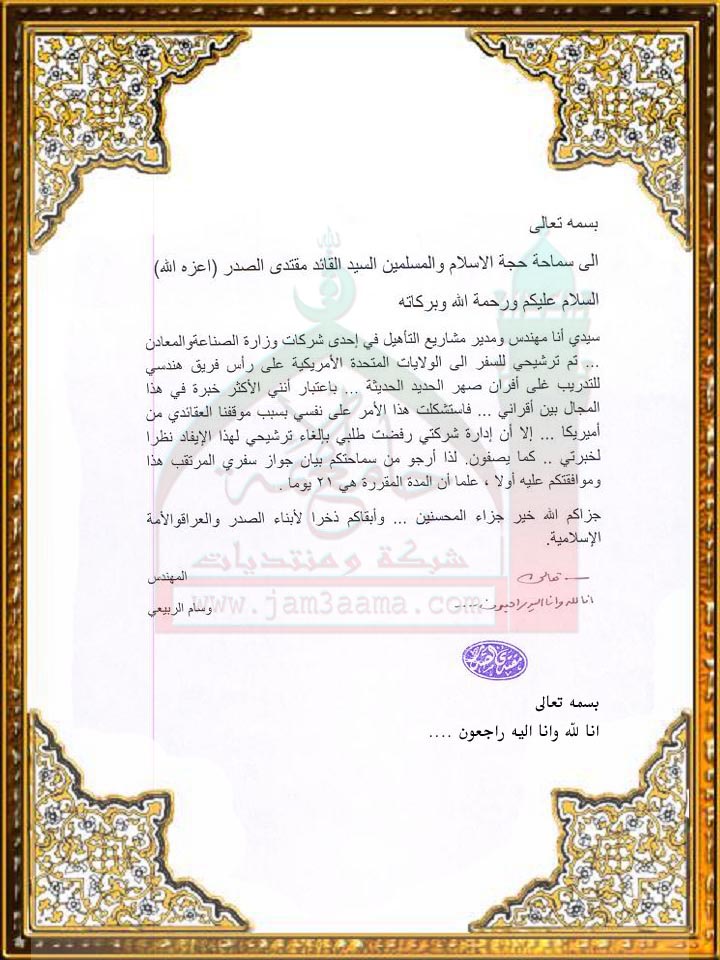 بسمه تعالى
الى سماحة حجة الاسلام والمسلمين السيد القائد مقتدى الصدر (اعزه الله)
السلام عليكم ورحمة الله وبركاته
سيدي أنا مهندس ومدير مشاريع التأهيل في إحدى شركات وزارة الصناعةوالمعادن
... تم ترشيحي للسفر الى الولايات المتحدة الأمريكية على رأس فريق هندسي
للتدريب غلى أفران صهر الحديد الحديثة ... باعتبار أنني الأكثر خبرة في هذا
المجال بين أقراني ... فاستشكلت هذا الأمر على نفسي بسبب موقفنا العقائدي من
أميريكا ... إلا أن إدارة شركتي رفضت طلبي بإلغاء ترشيحي لهذا الإيفاد نظرا
لخبرتي .. كما يصفون. لذا أرجو من سماحتكم بيان جواز سفري المرتقب هذا
وموافقتكم عليه أولا ، علما أن المدة المقررة هي ٢١ يوما .
جزاكم الله خير جزاء المحسنين ... وأبقاكم ذخرا لأبناء الصدر والعراقوالأمة
الإسلامية.
شركة ومنتديات
المهندس
www.jam3aama.com
وسام الربيعي
بسمه تعالى
انا لله وانا اليه راجعون ....
مقتدى الصدر
بسمه تعالى
انا لله وانا اليه راجعون ....